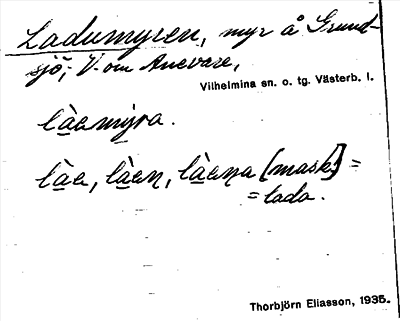 Ladumyren, myr å Grund-
sjö; V. om Anevare,
Vilhelmina sn. o. tg. Västerb. l.
làamyra.
làa, làan, làana [mask.] =
= lada.
Thorbjörn Eliasson, 1935.